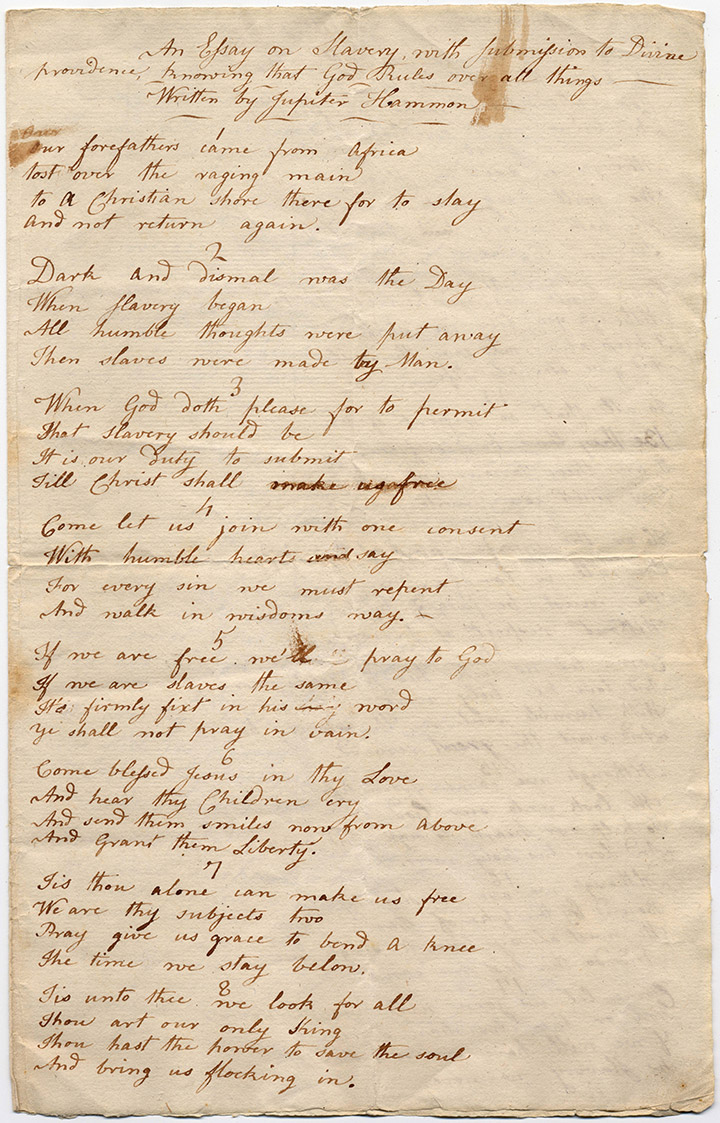 An Essay on Slavery, with submission to Divine
providence, knowing that God Rules over all things —
Written by Jupiter Hammon —
1
Our forefathers came from africa
tost over the raging main
to a Christian shore there for to stay
and not return again.
2
Dark and dismal was the Day
When slavery began
All humble thoughts were put away
Then slaves were made by Man.
3
When God doth please for to permit
That slavery should be
It is our duty to submit
Till Christ shall make us free
4
Come let us join with one consent
With humble hearts and say
For every sin we must repent
And walk in wisdoms way. —
5
If we are free we'll pray to God
If we are slaves the same
It's firmly fixt in his word
Ye shall not pray in vain.
6
Come blessed Jesus in thy Love
And hear thy Children cry
And send them smiles now from above
And Grant them Liberty.
7
Tis thou alone can make us free
We are thy subjects two
Pray give us grace to bend a knee
The time we stay below.
8
Tis unto thee we look for all
Thou art our only King
Thou hast the power to save the soul
And bring us flocking in.